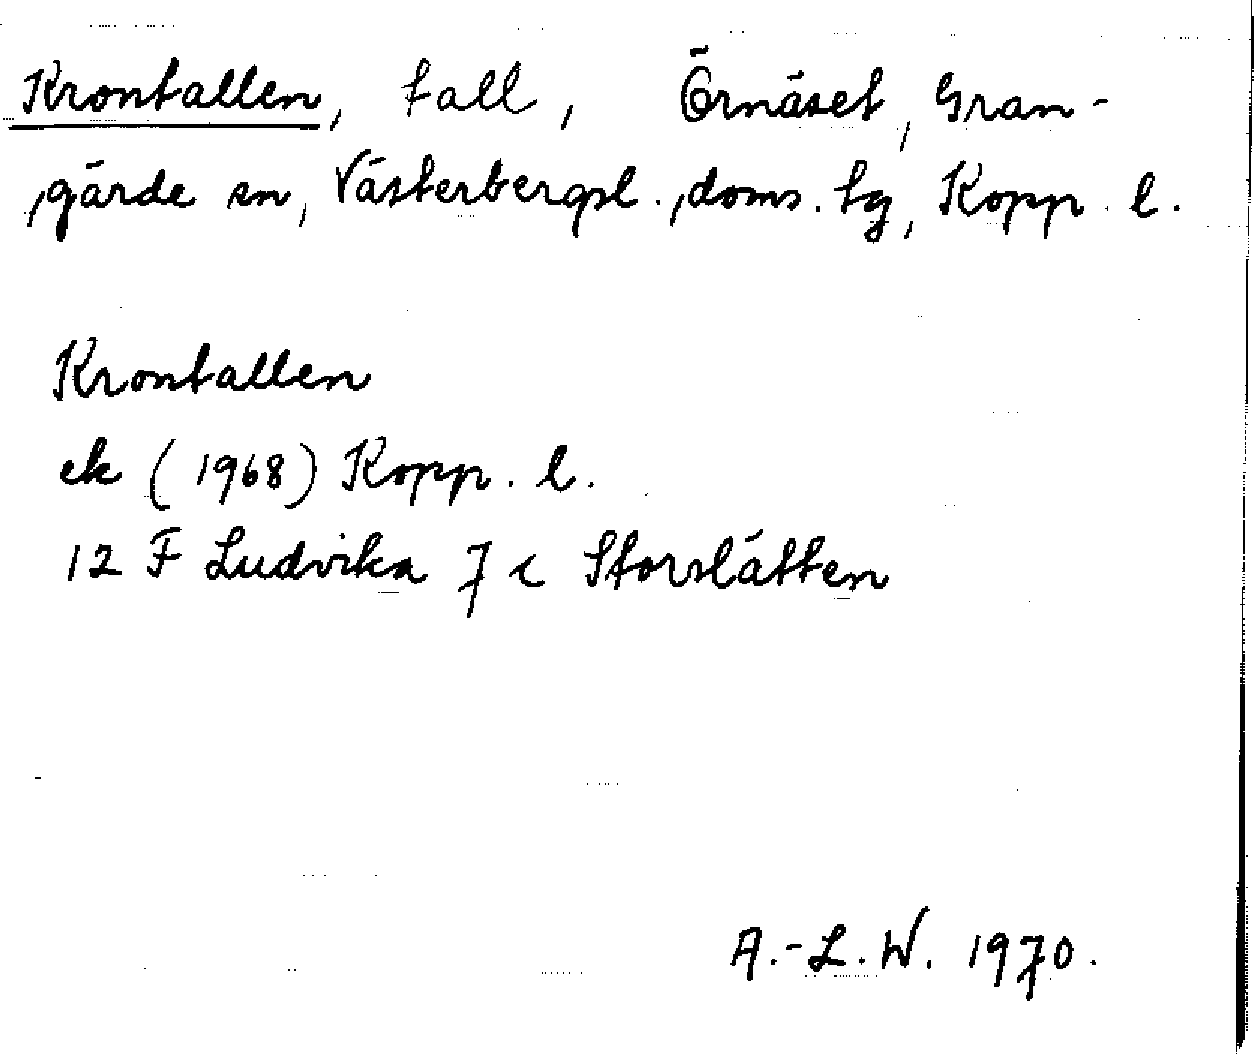 Krontallen, tall, Örnäset, Gran-
gärde sn, Västerbergsl., doms. tg, Kopp. l.
Krontallen
ek (1968) Kopp. l.
12 F Ludvika 7 c Storslätten
A.-L. W. 1970.